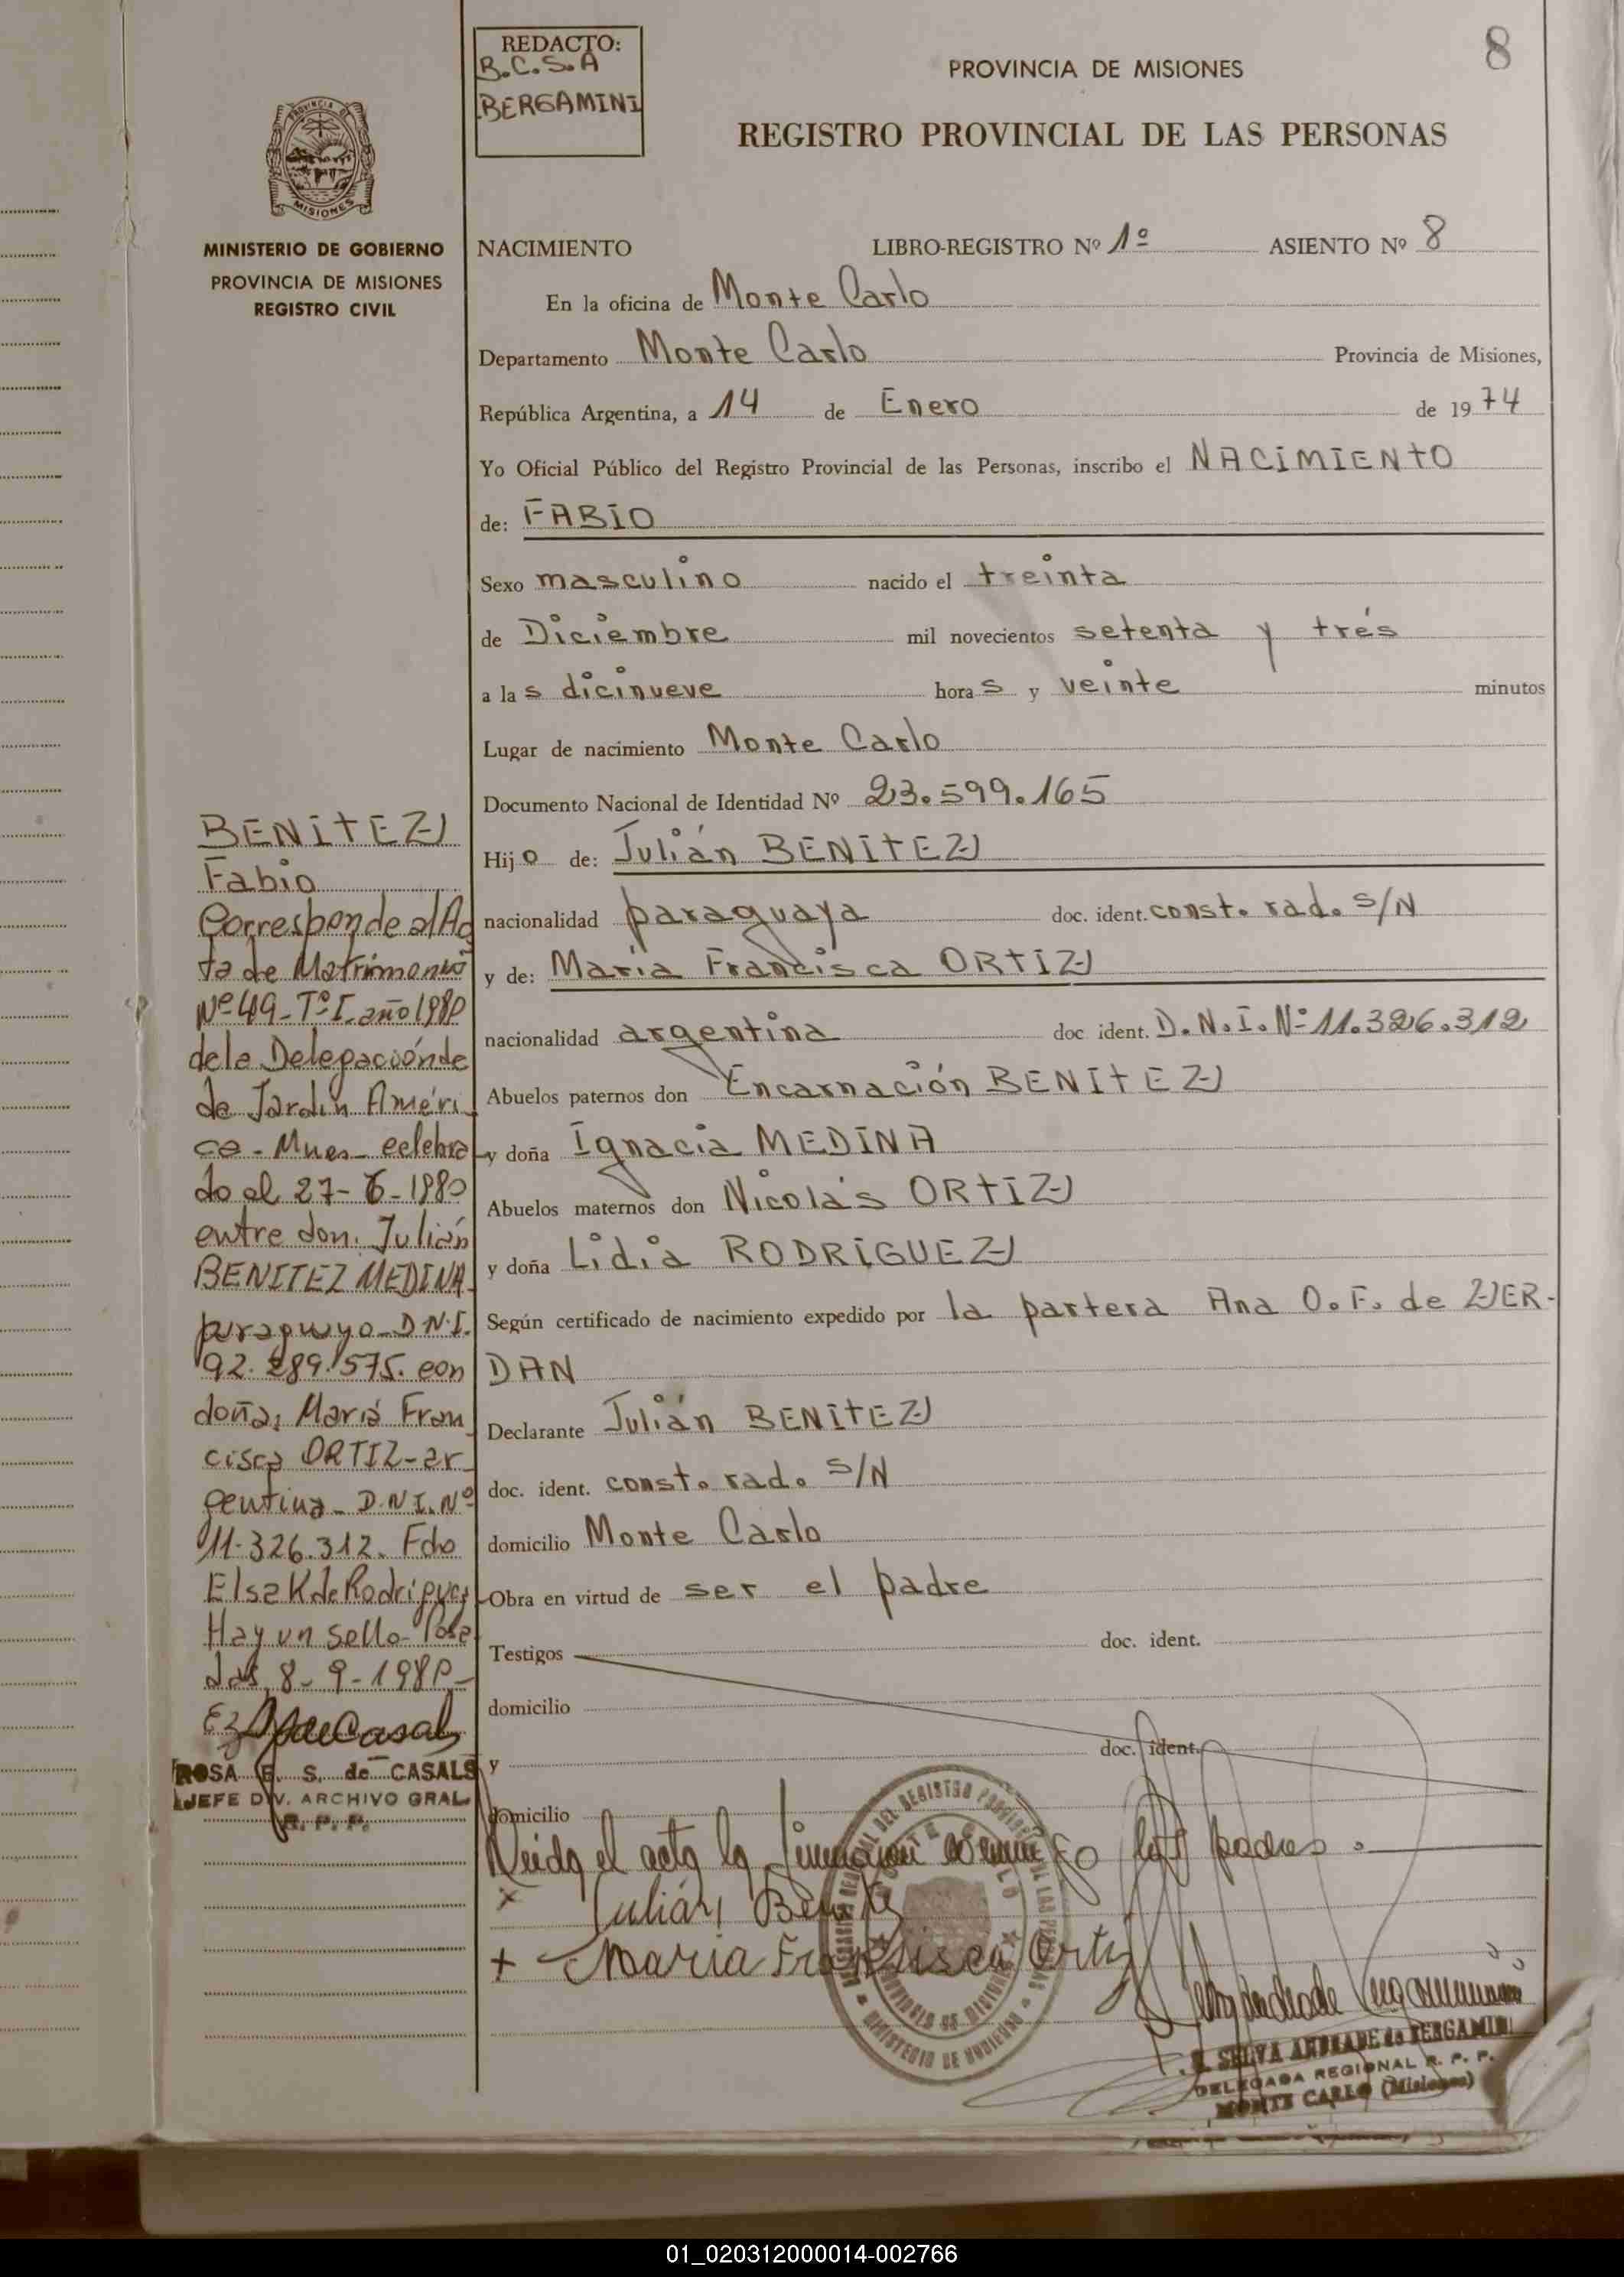 8
REDACTO:
B.C.S.A
BERGAMINI
PROVINCIA DE MISIONES
REGISTRO PROVINCIAL DE LAS PERSONAS
PROVINCIA DE
MISIONES
MINISTERIO DE GOBIERNO
PROVINCIA DE MISIONES
REGISTRO CIVIL
NACIMIENTO LIBRO-REGISTRO Nº 1º ASIENTO Nº 8
En la oficina de Monte Carlo
Departamento Monte Carlo Provincia de Misiones,
República Argentina, a 14 de Enero de 1974
Yo Oficial Público del Registro Provincial de las Personas, inscribo el NACIMIENTO
de: FABIO
Sexo masculino nacido el treinta
de Diciembre mil novecientos setenta y trés
a las dicinueve horas y veinte minutos
Lugar de nacimiento Monte Carlo
Documento Nacional de Identidad Nº 23.599.165
Hijo de: Julián BENITEZ
nacionalidad paraguaya doc. ident. const. rad. S/N
y de: María Francisca ORTIZ
nacionalidad argentina doc ident. D.N.I. Nº 11.326.312
Abuelos paternos don Encarnación BENITEZ
y doña Ignacia MEDINA
Abuelos maternos don Nicolás ORTIZ
y doña Lidia RODRIGUEZ
Según certificado de nacimiento expedido por la partera Ana O.F. de ZER-
DAN
Declarante Julián BENITEZ
doc. ident. const. rad. S/N
domicilio Monte Carlo
Obra en virtud de ser el padre
Testigos doc. ident.
domicilio
y doc. ident.
domicilio
el acta la conmigo los padres.
x Julián Benitez
+ María Francisca Ortiz
BENITEZ
Fabio
Corresponde al Ac
ta de Matrimonio
Nº 49-Tº I-año 1980
de la Delegación de
de Jardín Améri
ca-Mnes-celebra
do el 27-6-1980
entre don. Julián
BENITEZ MEDINA
paraguayo-D.N.I.
92.289.575. con
doña, María Fran
cisca ORTIZ-ar
gentina-D.N.I.Nº
11.326.312. Fdo
Elsa K de Rodríguez
Hay un sello-Posa
das, 8-9-1980-
ROSA E. S. de CASALS
JEFE DIV. ARCHIVO GRAL
R. P. P.
MINISTERIO DE GOBIERNO
PROVINCIA DE MISIONES
SELVA ANDRADE de BERGAMINI
DELEGADA REGIONAL R. P. P.
MONTE CARLO (Misiones)
01_020312000014-002766